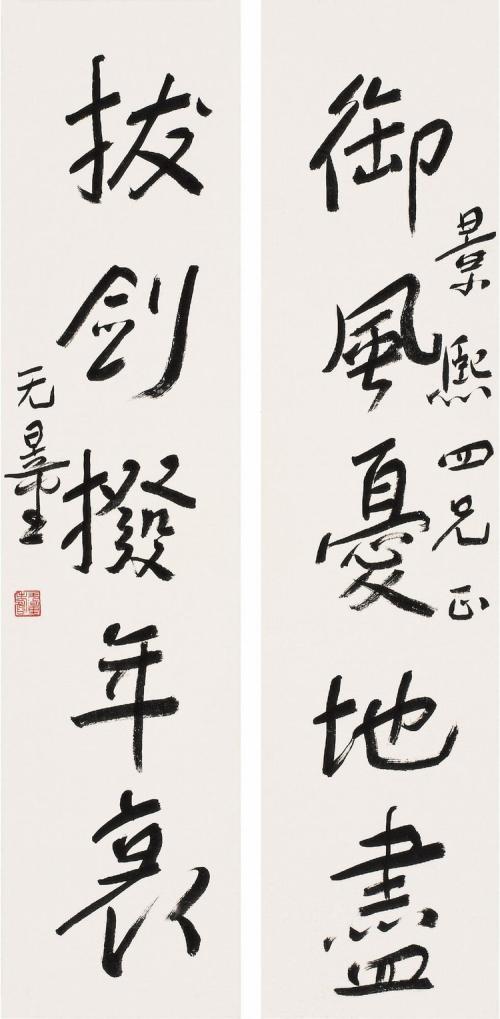 御風憂地盡
景熙四兄正
拔剑撥年衰
无量